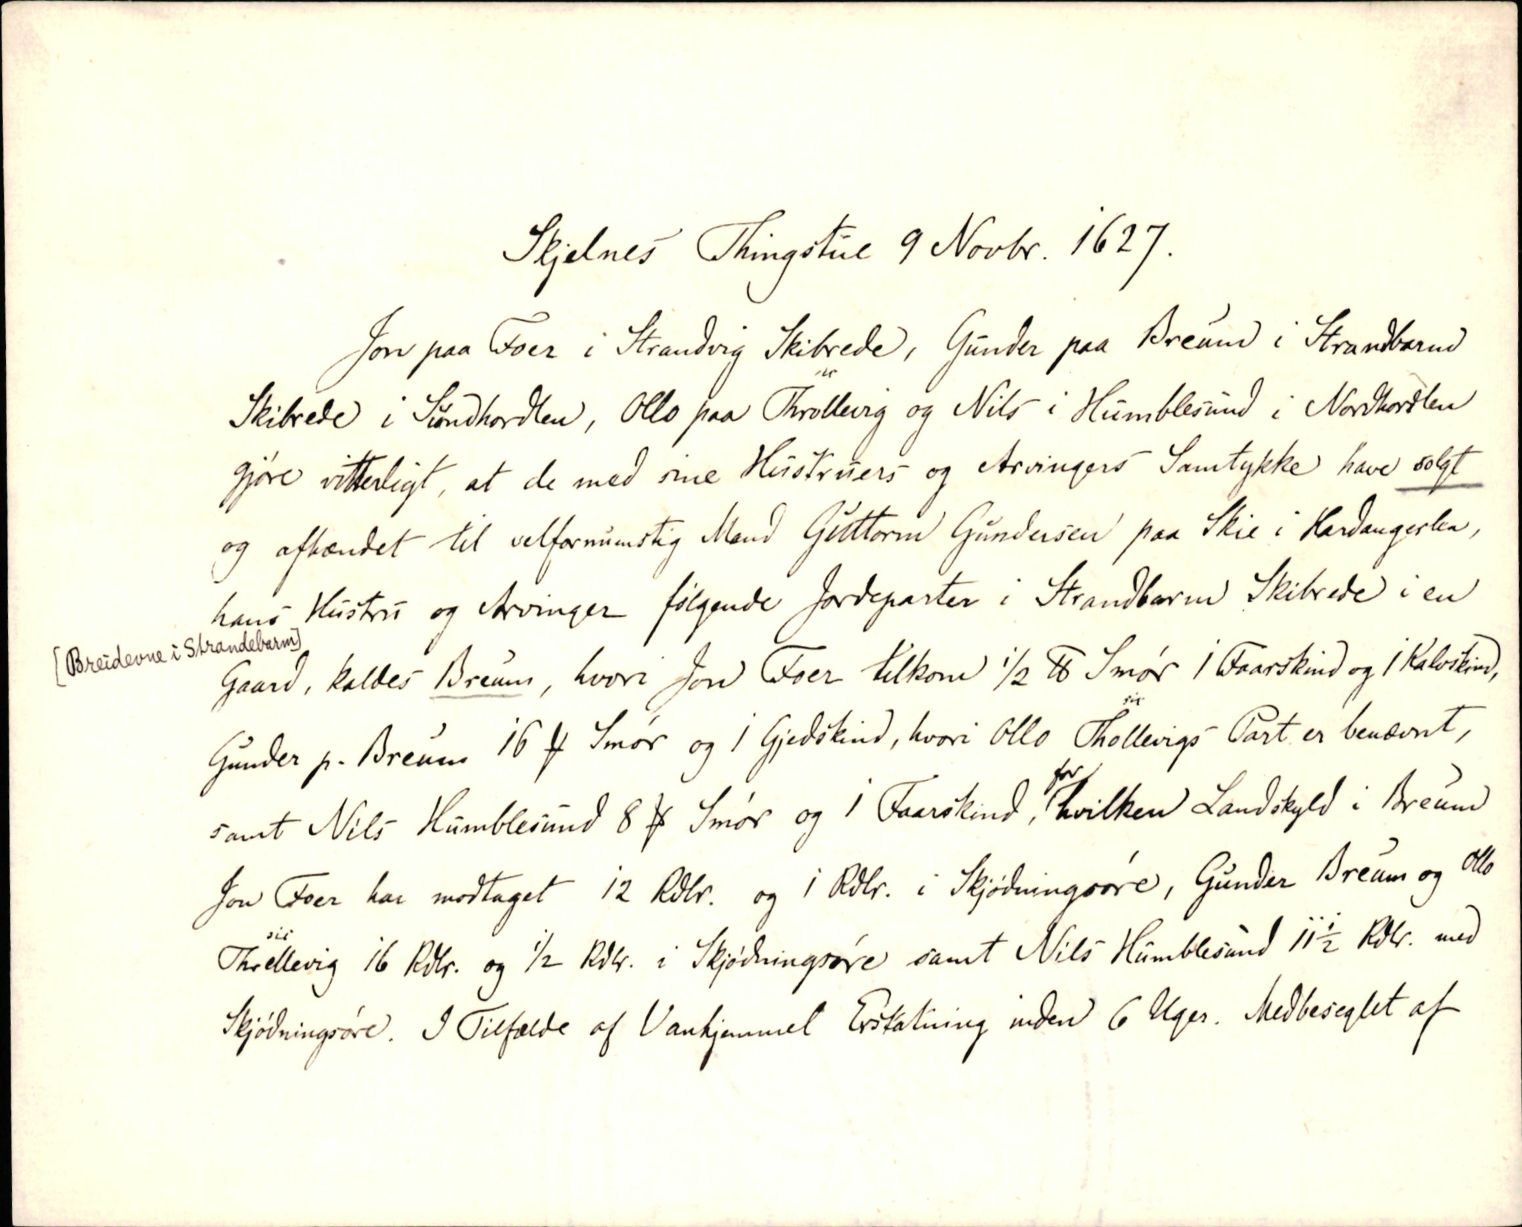 Skjelnes Thingstue 9 Novbr. 1627.
Jon paa Foer i Strandvig Skibrede, Gunder paa Breum i Strandbarm
Skibrede i Søndhordlen, Ollo paa Throllevig og Nils i Humblesund i Nordhordlen
gjøre vitterligt, at de med sine Hustruers og Arvingers Samtykke have solgt
og afhændet til velfornumstig Mand Guttorm Gundersen paa Skie i Hardangerlen,
hans Hustru og Arvinger følgende Jordeparter i Strandbarm Skibrede i en
[Breidevne i Strandebarm]
Gaard, kaldes Breum, hvori Jon Foer tilkom 1/2 ℔ Smør 1 Faarskind og 1 Kalvskind,
Gunder p. Breum 16 Smør og 1 Gjedskind, hvori Ollo Thollevigs Part er benævnt,
samt Nils Humblesund 8 Smør og 1 Faarskind, for hvilken Landskyld i Breum
Jon Foer har modtaget 12 Rdlr. og 1 Rdlr. i Skjødningsøre, Gunder Breum og Ollo
sic
Threllevig 16 Rdlr. og 1/2 Rdlr. i Skjødningsøre samt Nils Humblesund 11 1/2 Rdlr. med
Skjødningsøre. I Tilfælde af Vanhjemmel Erstatning inden 6 Uger. Medbeseglet af